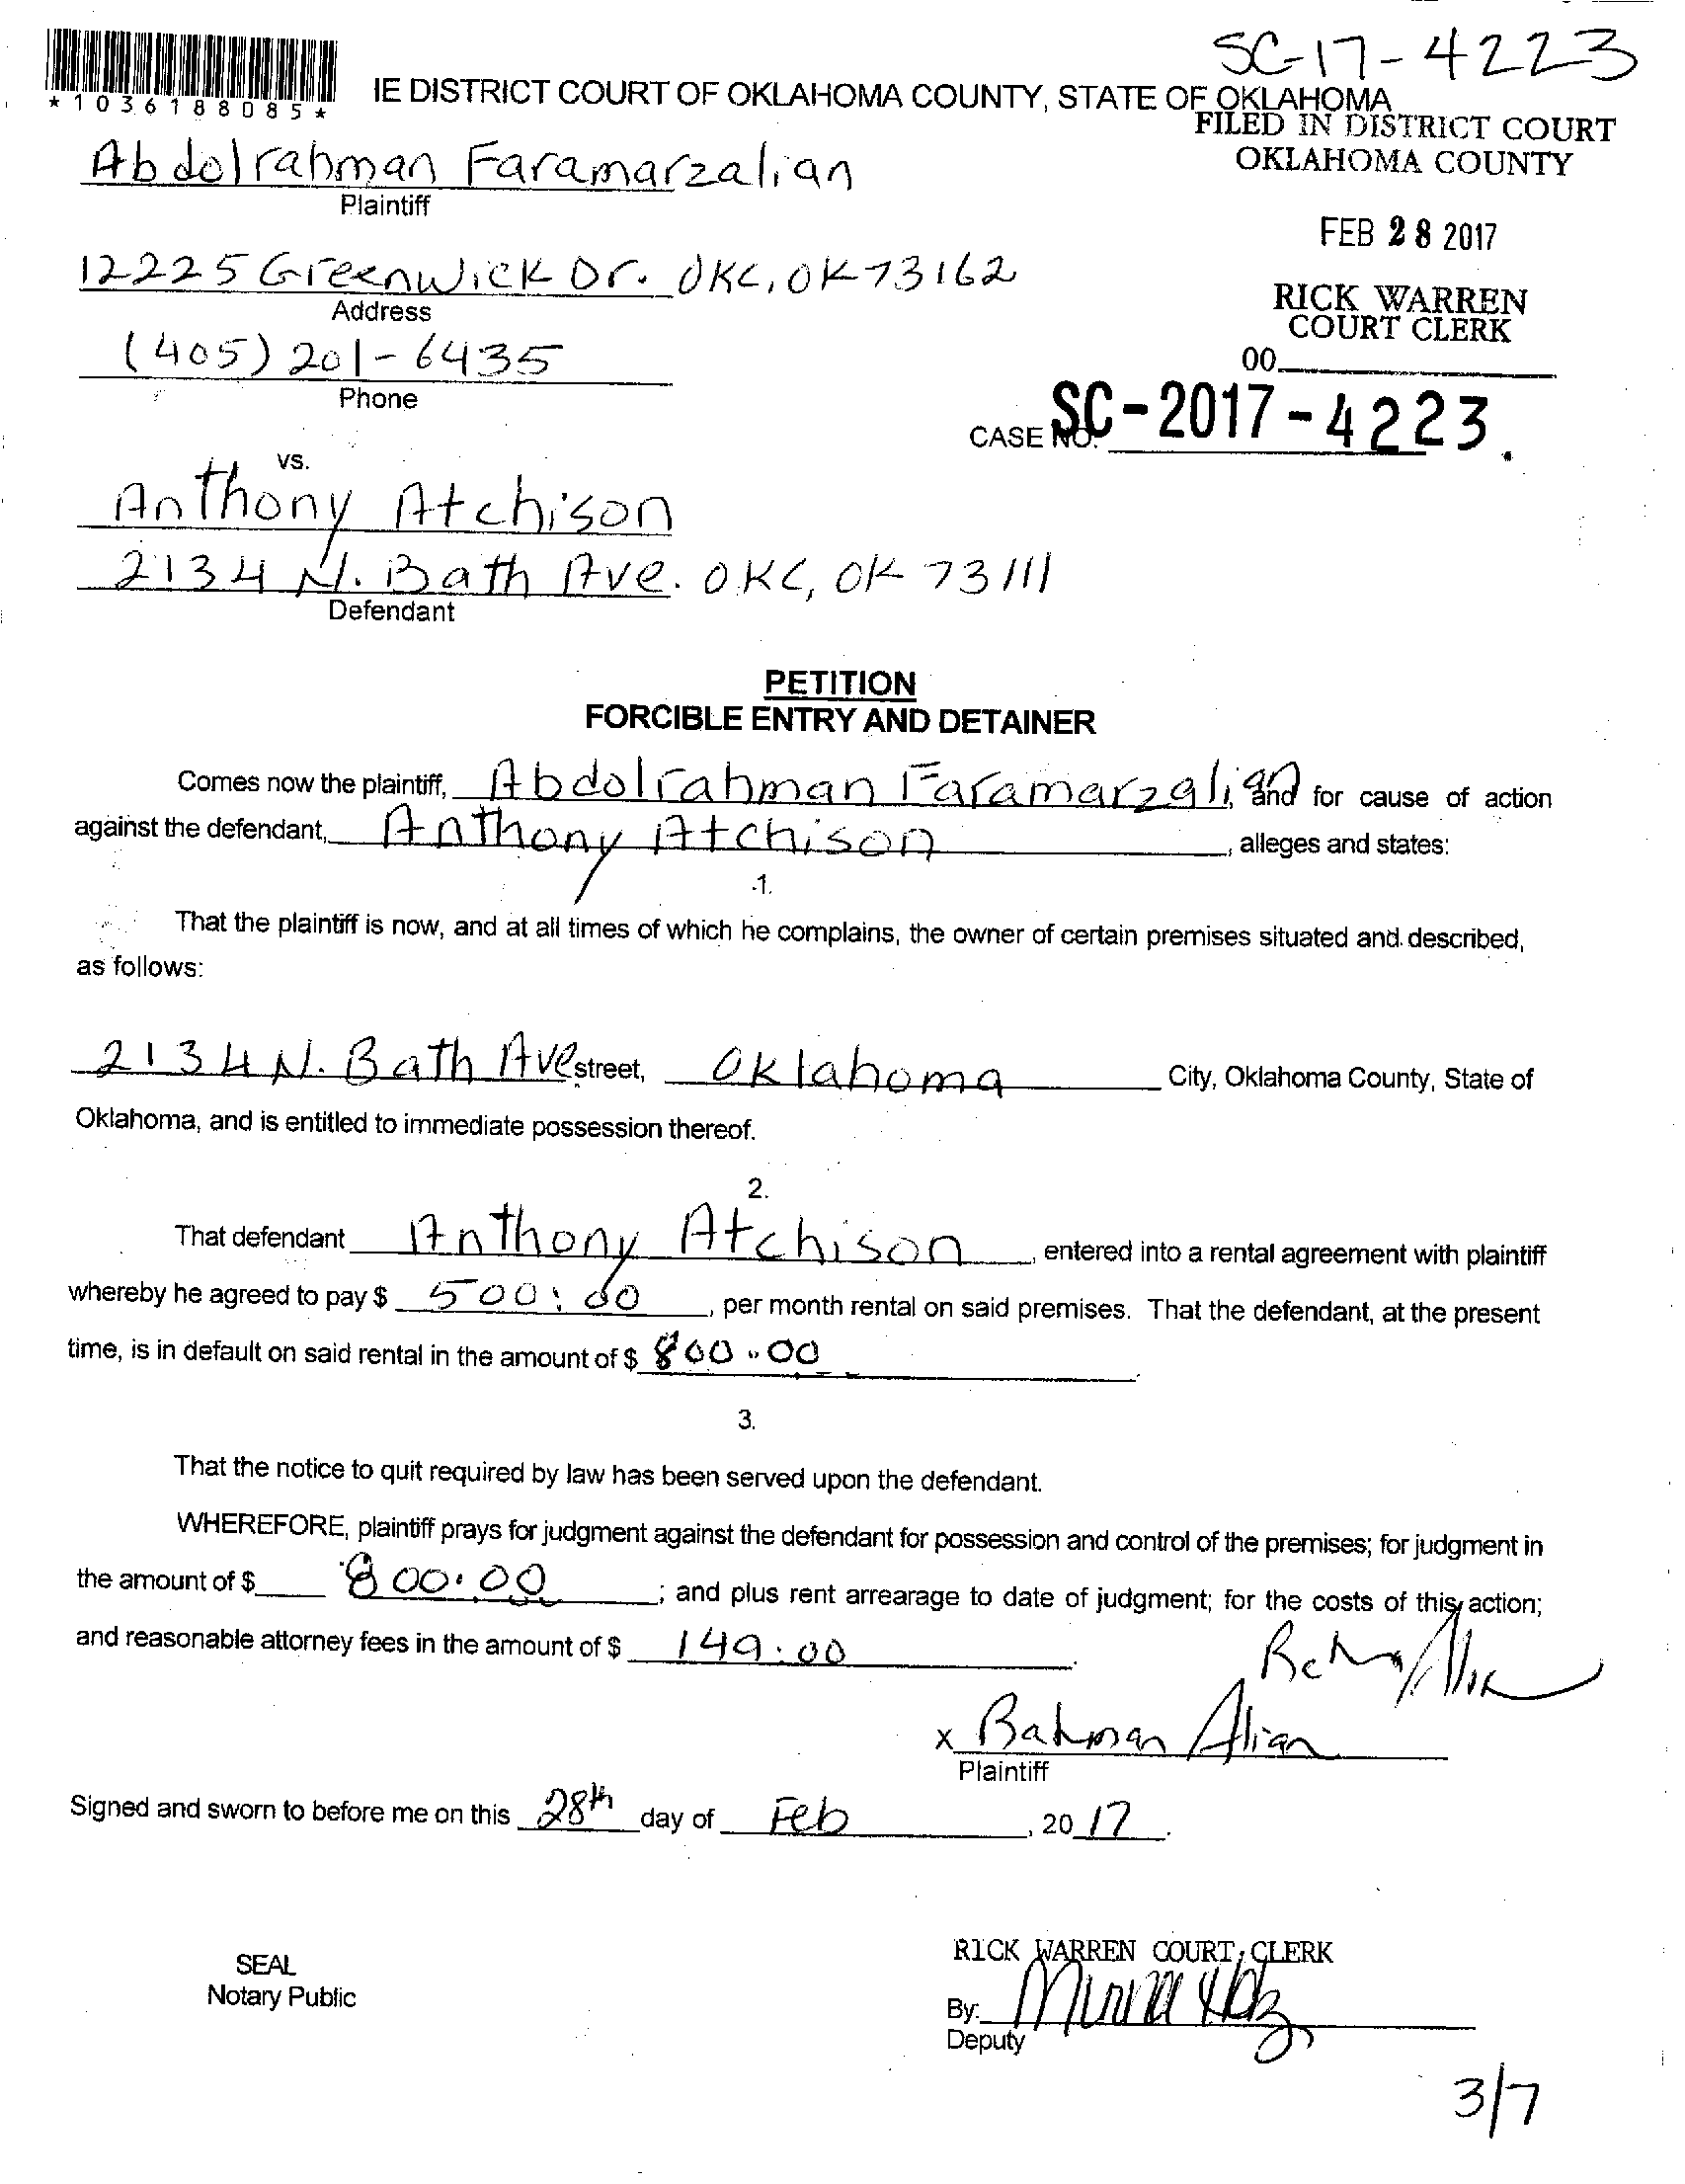 SC-17-4223
*1036188085*
IE DISTRICT COURT OF OKLAHOMA COUNTY, STATE OF OKLAHOMA
FILED IN DISTRICT COURT
OKLAHOMA COUNTY
Abdolrahman Faramarzalian
Plaintiff
FEB 28 2017
12225 Greenwick Dr. OKC, OK 73162
Address
RICK WARREN
COURT CLERK
(405) 201-6435
Phone
00
CASE NO. SC-2017-4223.
vs.
Anthony Atchison
2134 N. Bath Ave. OKC, OK 73111
Defendant
PETITION
FORCIBLE ENTRY AND DETAINER
Comes now the plaintiff, Abdolrahman Faramarzalian, and for cause of action
against the defendant, Anthony Atchison, alleges and states:
1.
That the plaintiff is now, and at all times of which he complains, the owner of certain premises situated and described,
as follows:
2134 N. Bath Ave street, Oklahoma City, Oklahoma County, State of
Oklahoma, and is entitled to immediate possession thereof.
2.
That defendant Anthony Atchison, entered into a rental agreement with plaintiff
whereby he agreed to pay $ 500.00, per month rental on said premises. That the defendant, at the present
time, is in default on said rental in the amount of $ 800.00
3.
That the notice to quit required by law has been served upon the defendant.
WHEREFORE, plaintiff prays for judgment against the defendant for possession and control of the premises; for judgment in
the amount of $ 800.00; and plus rent arrearage to date of judgment; for the costs of this action;
and reasonable attorney fees in the amount of $ 149.00.
x Bahman Alian
Plaintiff
Signed and sworn to before me on this 28th day of Feb, 2017.
RICK WARREN COURT CLERK
SEAL
Notary Public
By:
Deputy
3/7